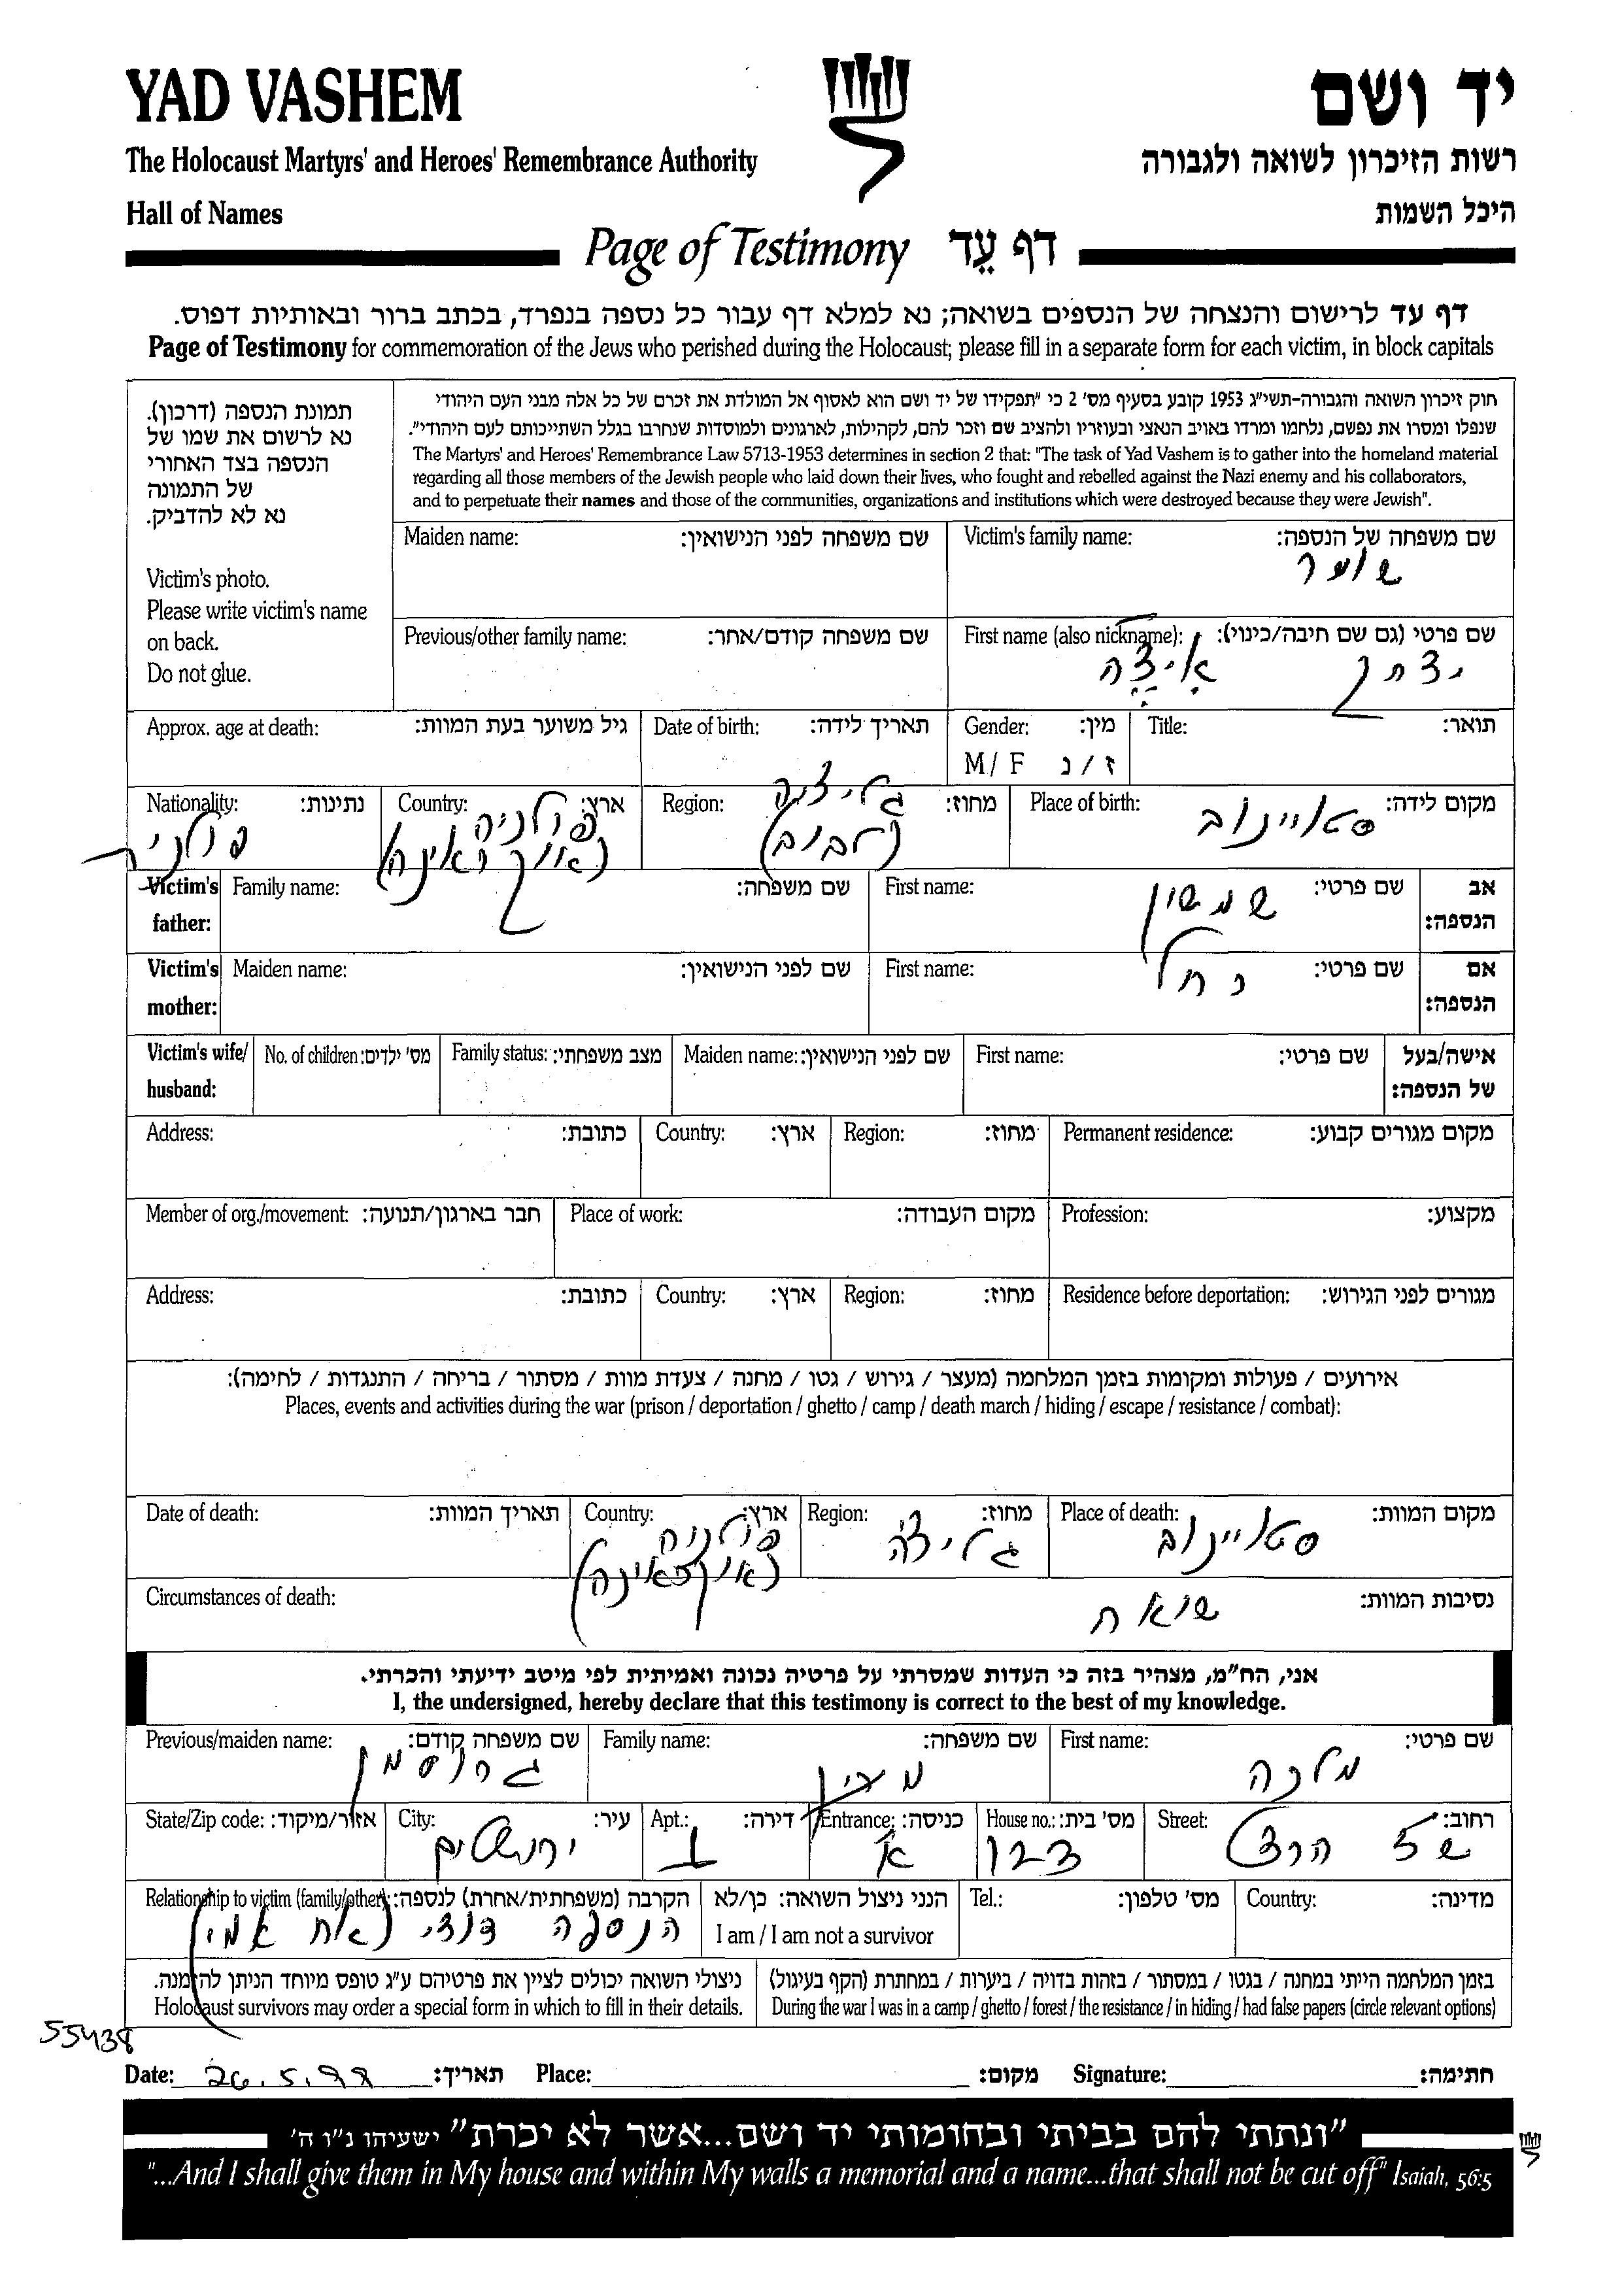 YAD VASHEM
יד ושם
The Holocaust Martyrs' and Heroes' Remembrance Authority
רשות הזיכרון לשואה ולגבורה
Hall of Names
היכל השמות
Page of Testimony דף עֵד
דף עד לרישום והנצחה של הנספים בשואה; נא למלא דף עבור כל נספה בנפרד, בכתב ברור ובאותיות דפוס.
Page of Testimony for commemoration of the Jews who perished during the Holocaust; please fill in a separate form for each victim, in block capitals
תמונת הנספה (דרכון).
נא לרשום את שמו של
הנספה בצד האחורי
של התמונה
נא לא להדביק.
Victim's photo.
Please write victim's name
on back.
Do not glue.
חוק זיכרון השואה והגבורה-תשי"ג 1953 קובע בסעיף מס' 2 כי "תפקידו של יד ושם הוא לאסוף אל המולדת את זכרם של כל אלה מבני העם היהודי
שנפלו ומסרו את נפשם, נלחמו ומרדו באויב הנאצי ובעוזריו ולהציב שם וזכר להם, לקהילות, לארגונים ולמוסדות שנחרבו בגלל השתייכותם לעם היהודי".
The Martyrs' and Heroes' Remembrance Law 5713-1953 determines in section 2 that: "The task of Yad Vashem is to gather into the homeland material
regarding all those members of the Jewish people who laid down their lives, who fought and rebelled against the Nazi enemy and his collaborators,
and to perpetuate their names and those of the communities, organizations and institutions which were destroyed because they were Jewish".
שם משפחה של הנספה: Victim's family name:
שם משפחה לפני הנישואין: Maiden name:
שם פרטי (גם שם חיבה/כינוי): First name (also nickname):
יצחק איצה
שם משפחה קודם/אחר: Previous/other family name:
תואר: Title:
מין: Gender:
ז / נ M / F
תאריך לידה: Date of birth:
גיל משוער בעת המוות: Approx. age at death:
מקום לידה: Place of birth:
סטויינוב
מחוז: Region:
גליציה
(לבוב)
ארץ: Country:
פולניה
(אוקראינה)
נתינות: Nationality:
פולני
אב הנספה: Victim's father:
שם פרטי: First name:
שמשון
שם משפחה: Family name:
אם הנספה: Victim's mother:
שם פרטי: First name:
רחל
שם לפני הנישואין: Maiden name:
אישה/בעל של הנספה: Victim's wife/ husband:
שם פרטי: First name:
שם לפני הנישואין: Maiden name:
מצב משפחתי: Family status:
מס' ילדים: No. of children:
מקום מגורים קבוע: Permanent residence:
מחוז: Region:
ארץ: Country:
כתובת: Address:
מקצוע: Profession:
מקום העבודה: Place of work:
חבר בארגון/תנועה: Member of org./movement:
מגורים לפני הגירוש: Residence before deportation:
מחוז: Region:
ארץ: Country:
כתובת: Address:
אירועים / פעולות ומקומות בזמן המלחמה (מעצר / גירוש / גטו / מחנה / צעדת מוות / מסתור / בריחה / התנגדות / לחימה):
Places, events and activities during the war (prison / deportation / ghetto / camp / death march / hiding / escape / resistance / combat):
מקום המוות: Place of death:
סטויינוב
מחוז: Region:
גליציה
ארץ: Country:
פולניה
(אוקראינה)
תאריך המוות: Date of death:
נסיבות המוות: Circumstances of death:
שואה
אני, הח"מ, מצהיר בזה כי העדות שמסרתי על פרטיה נכונה ואמיתית לפי מיטב ידיעתי והכרתי.
I, the undersigned, hereby declare that this testimony is correct to the best of my knowledge.
שם פרטי: First name:
מלכה
שם משפחה: Family name:
שם משפחה קודם: Previous/maiden name:
גרוסמן
רחוב: Street:
שד הרצל
מס' בית: House no.:
123
כניסה: Entrance:
א
דירה: Apt.:
1
עיר: City:
ירושלים
אזור/מיקוד: State/Zip code:
מדינה: Country:
מס' טלפון: Tel.:
הנני ניצול השואה: כן/לא
I am / I am not a survivor
הקרבה (משפחתית/אחרת) לנספה: Relationship to victim (family/other):
הנספה דודי (אח אמי)
בזמן המלחמה הייתי במחנה / בגטו / במסתור / בזהות בדויה / ביערות / במחתרת (הקף בעיגול)
During the war I was in a camp / ghetto / forest / the resistance / in hiding / had false papers (circle relevant options)
ניצולי השואה יכולים לציין את פרטיהם ע"ג טופס מיוחד הניתן להזמנה.
Holocaust survivors may order a special form in which to fill in their details.
55438
Date: 26.5.99 תאריך: Place: מקום: Signature: חתימה:
"ונתתי להם בביתי ובחומותי יד ושם...אשר לא יכרת" ישעיהו נ"ו ה'
"...And I shall give them in My house and within My walls a memorial and a name...that shall not be cut off" Isaiah, 56:5